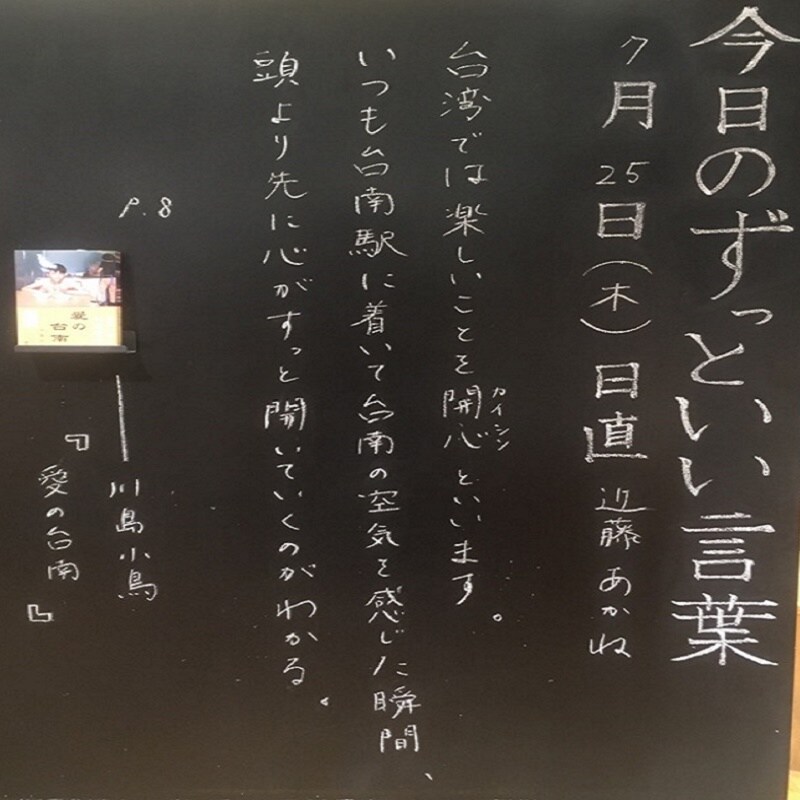 今日のずっといい言葉
7月25日(木)日直 近藤あかね
台湾では楽しいことを開心といいます。
カイシン
いつも台南駅に着いて台南の空気を感じた瞬間、
頭より先に心がすっと開いていくのがわかる。
P.8
川島小鳥
『愛の台南』
愛の
台南